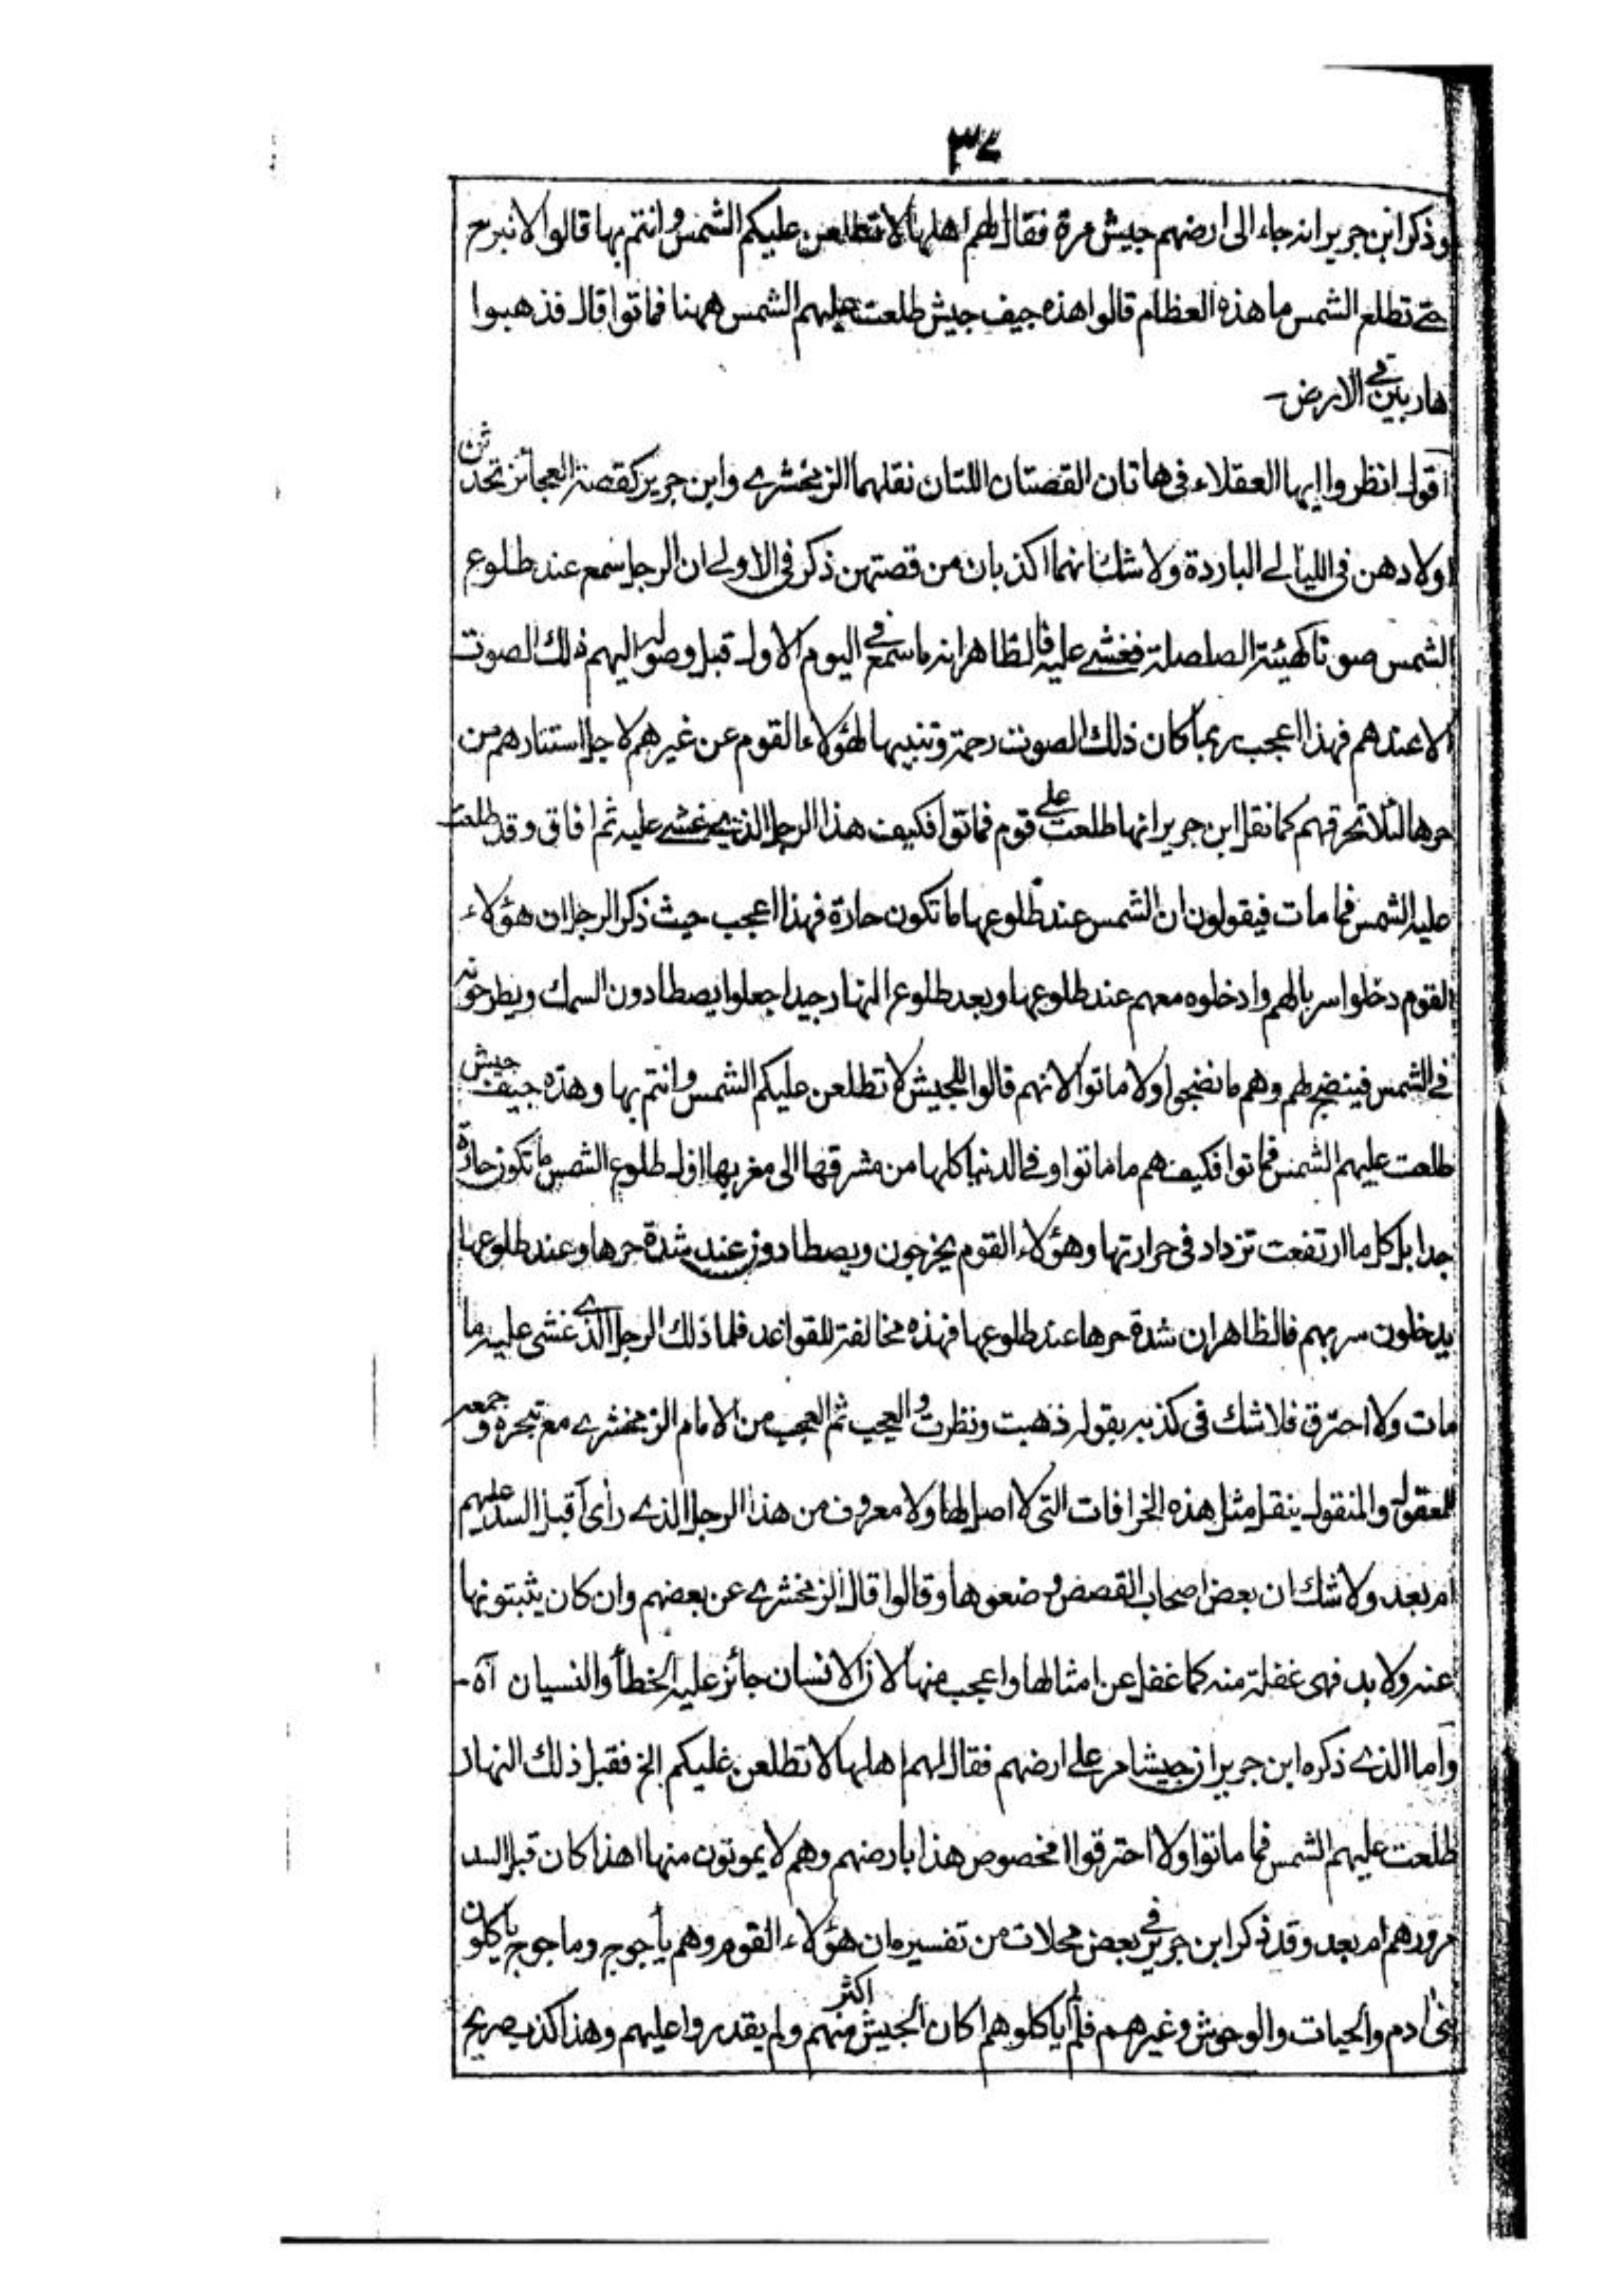 ٣٧
وذكر ابن جرير انه جاء الى ارضهم جيش مرة فقال لهم اهلها لا تطلعن عليكم الشمس وانتم بها قالوا لا نبرح
حتے تطلع الشمس ما هذه العظام قالوا هذه جيف جيش طلعت عليهم الشمس ههنا فماتوا قال فذهبوا
هاربين في الارض۔
اقول انظروا ايها العقلاء فى هاتان القصتان اللتان نقلهما الزمخشرے وابن جرير كقصة العجائز تحدثن
اولادهن فى الليالے الباردة ولا شك انهما اكذبان من قصتهن ذكر فى الاولے ان الرجل سمع عند طلوع
الشمس صوتا كهيئة الصلصلة فغشے عليه فالظاهر انه ما سمع في اليوم الاول قبل وصوله اليهم ذلك الصوت
الا عندهم فهذا اعجب ربما كان ذلك الصوت رحمة وتنبيها لهؤلاء القوم عن غيرهم لاجل استتارهم من
حرها لئلا تحرقهم كما نقل ابن جرير انها طلعت علے قوم فماتوا فكيف هذا الرجل الذے غشے عليه ثم افاق وقد طلعت
عليه الشمس فما مات فيقولون ان الشمس عند طلوعها ما تكون حارة فهذا اعجب حيث ذكر الرجل ان هؤلاء
القوم دخلوا سربالهم وادخلوه معهم عند طلوعها وبعد طلوع النهار جيدا جعلوا يصطادون السمك ويطرحونه
فے الشمس فينضج لهم وهم ما نضجوا ولا ماتوا لانهم قالوا للجيش لا تطلعن عليكم الشمس وانتم بها وهذه جيف جيش
طلعت عليهم الشمس فماتوا فكيف هم ما ماتوا وفے الدنيا كلها من مشرقها الى مغربها اول طلوع الشمس ما تكون حارة
جدا بل كل ما ارتفعت تزداد فى حرارتها وهؤلاء القوم يخرجون ويصطادون عند شدة حرها وعند طلوعها
يدخلون سربهم فالظاهر ان شدة حرها عند طلوعها فهذه مخالفة للقواعد فلما ذلك الرجل الذے غشى عليه ما
مات ولا احترق فلا شك فى كذبه بقوله ذهبت ونظرت والعجب ثم العجب من الامام الزمخشرے مع تبحره وجمعه
للمعقول والمنقول ينقل مثل هذه الخرافات التى لا اصل لها ولا معروف من هذا الرجل الذے راى أقبل السد عليهم
ام بعد ولا شك ان بعض اصحاب القصص وضعوها وقالوا قال الزمخشرے عن بعضهم وان كان يثبتونها
عنه ولا بد فهى غفلة منه كما غفل عن امثالها واعجب منها لان الانسان جائز عليه الخطأ والنسيان آه۔
واما الذے ذكره ابن جرير ان جيشا مر علے ارضهم فقال لهم اهلها لا تطلعن عليكم الخ فقبل ذلك النهار
طلعت عليهم الشمس فما ماتوا ولا احترقوا امخصوص هذا بارضهم وهم لا يموتون منها اهذا كان قبل السد
مرورهم ام بعد وقد ذكر ابن جرير في بعض محلات من تفسيره ان هؤلاء القوم وهم يأجوج وماجوج ياكلون
بنى ادم والحيات والوحوش وغيرهم فلم لم ياكلوهم اكان الجيش اكثر منهم ولم يقدروا عليهم وهذا كذب صريح